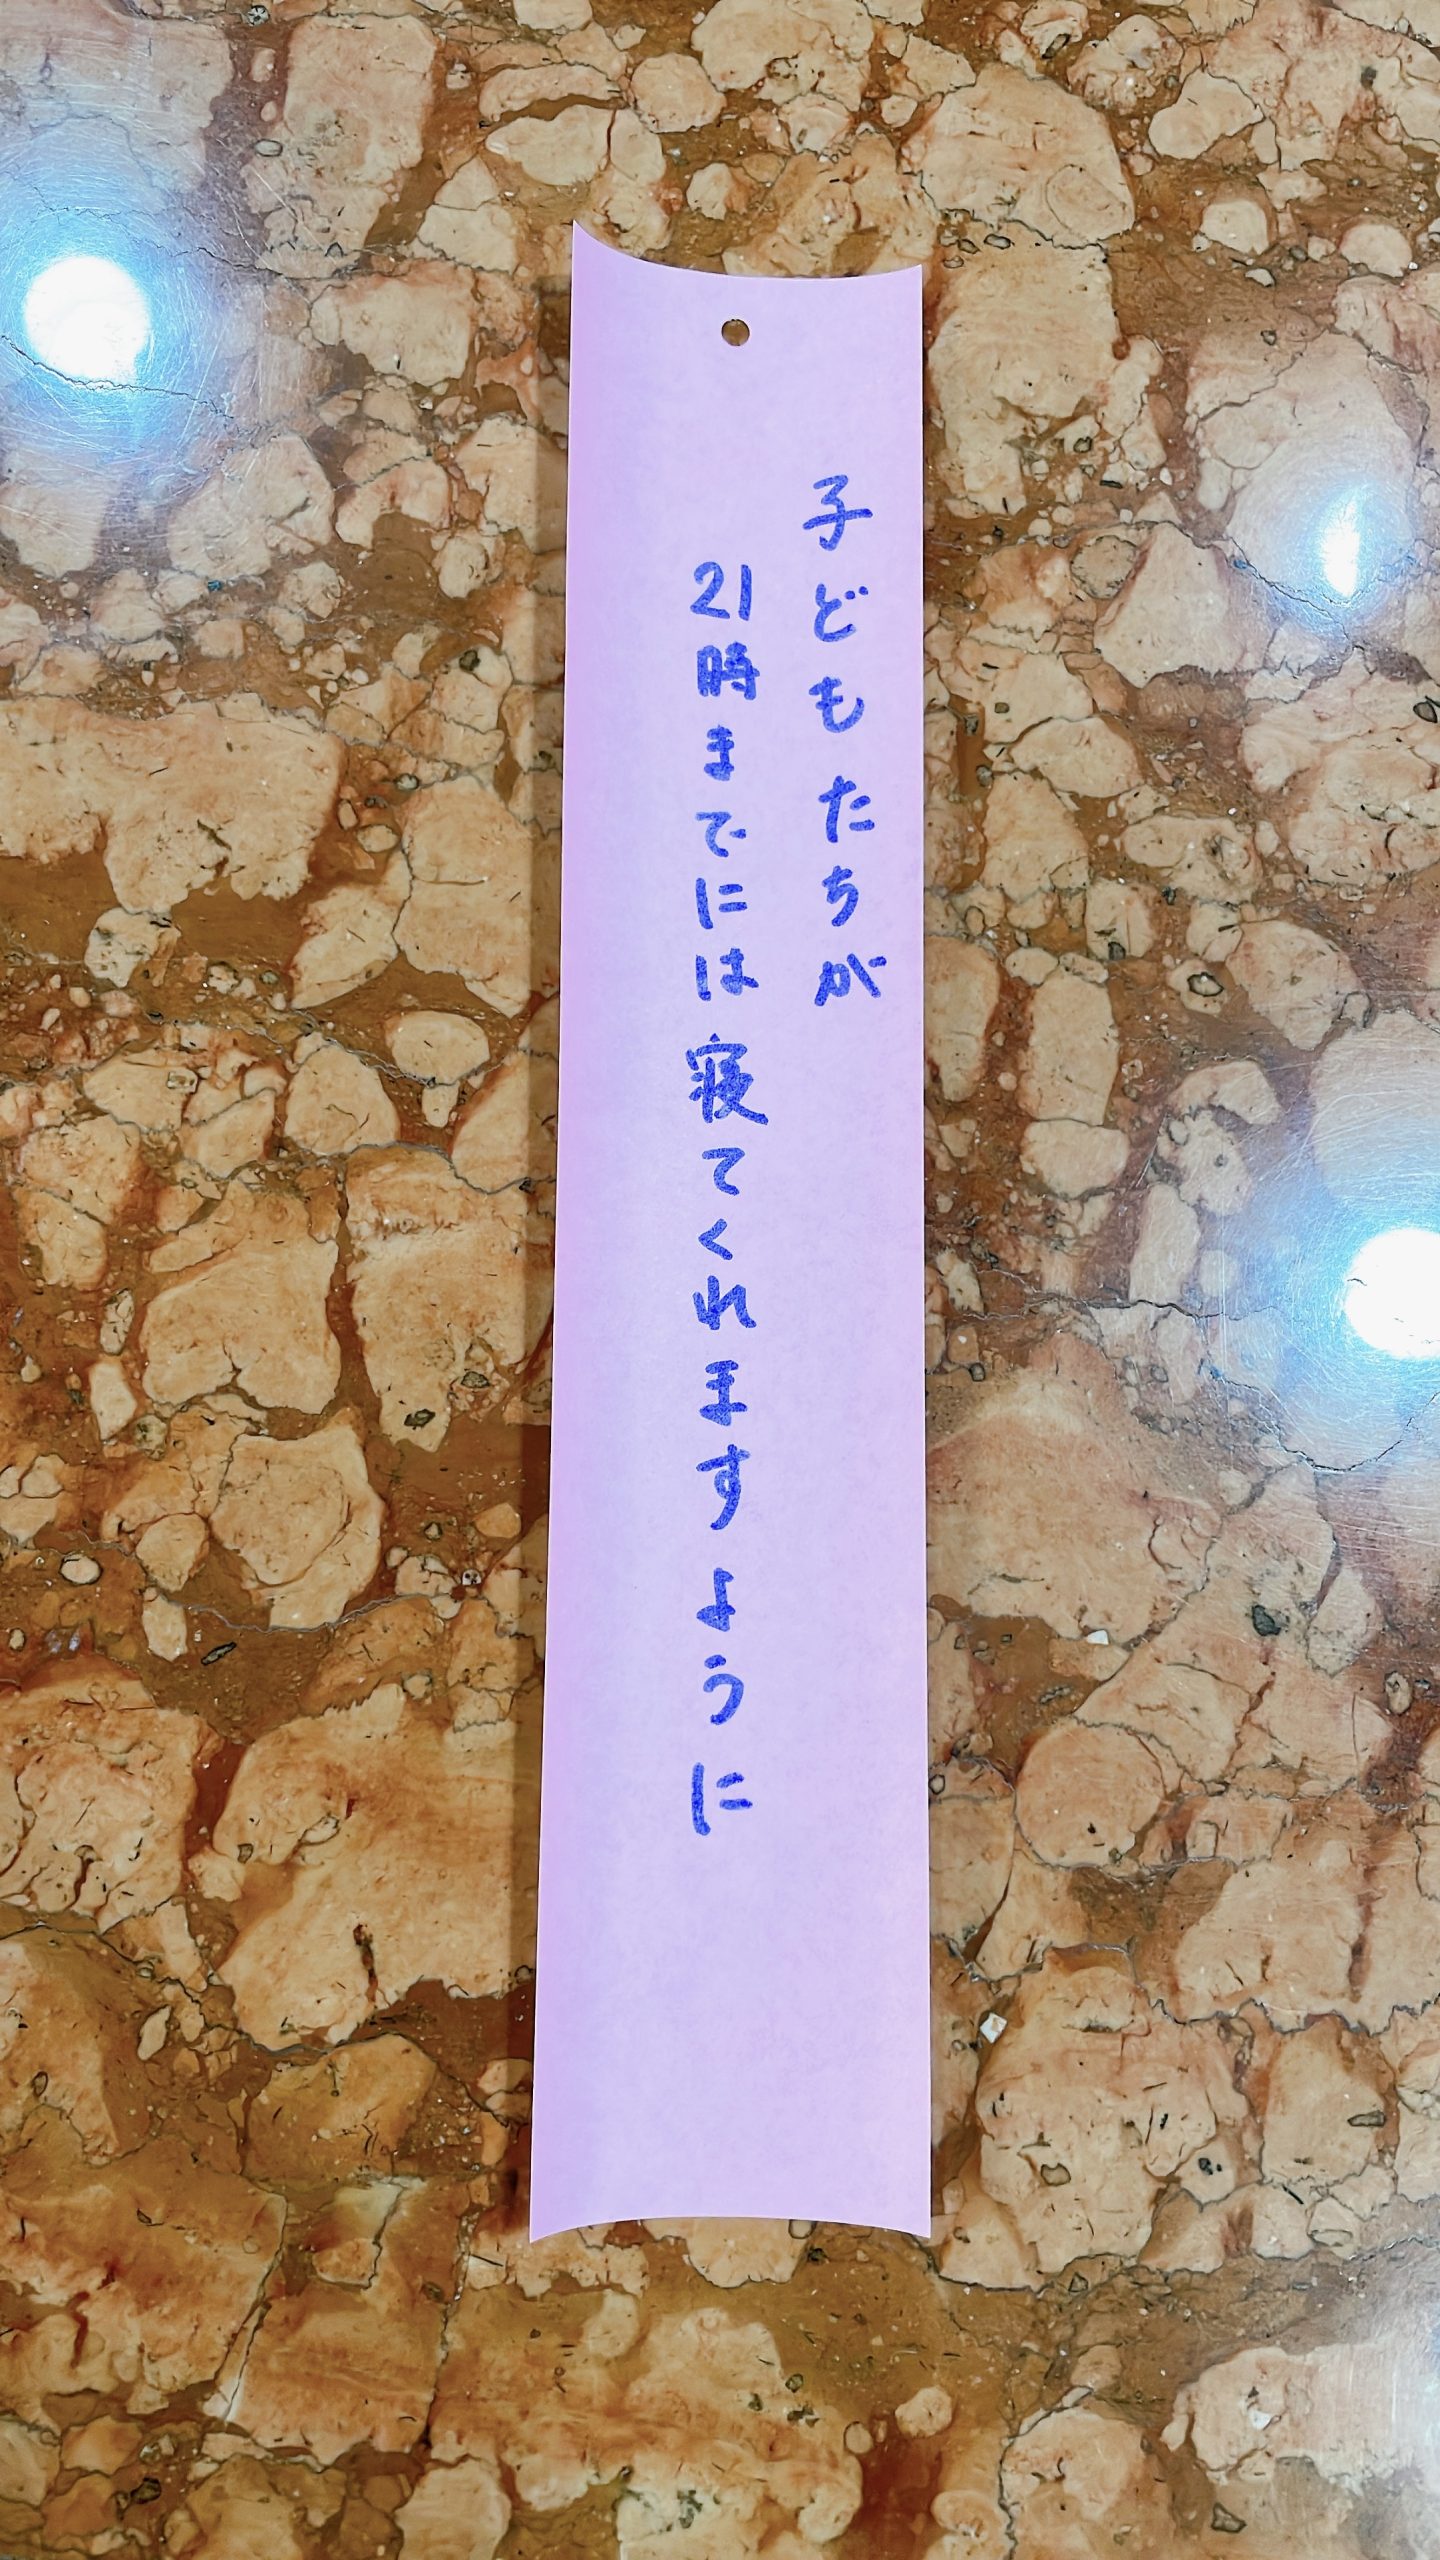 子どもたちが
21時までには寝てくれますように